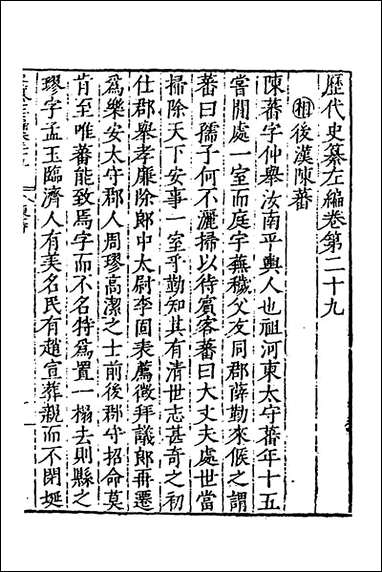 歷代史纂左編卷第二十九
相後漢陳蕃
陳蕃字仲舉汝南平輿人也祖河東太守蕃年十五
嘗閒處一室而庭宇蕪穢父友同郡薛勤來候之謂
蕃曰孺子何不灑掃以待賓客蕃曰大丈夫處世當
掃除天下安事一室乎勤知其有清世志甚奇之初
仕郡舉孝廉除郎中太尉李固表薦徵拜議郎再遷
爲樂安太守郡人周璆高潔之士前後郡守招命莫
肯至唯蕃能致焉字而不名特爲置一榻去則縣之
璆字孟玉臨濟人有美名民有趙宣葬親而不閉埏